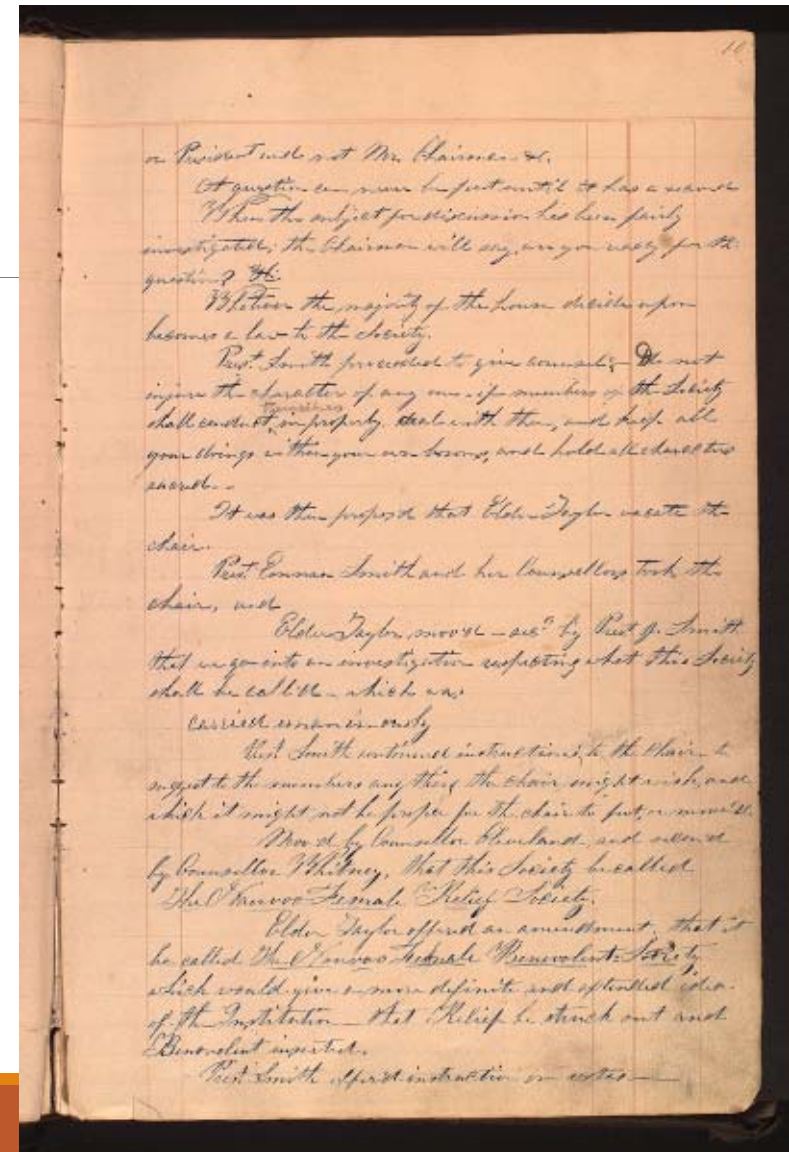 10
or President and not Mr. Chairman &c.
A question can never be put until it has a second
When the subject for discussion has been fairly
investigated; the Chairman will say, are you ready for the
question? &c.
Whatever the majority of the house decide upon
becomes a law to the Society.
Prest. Smith proceeded to give counsel; Do not
injure the character of any one — if members of the Society
shall conduct improperly, deal with them, and keep all
your doings within your own bosoms, and hold all characters
sacred.
It was then propos'd that Elder Taylor vacate the
chair.
Prest. Emma Smith and her Counsellors took the
chair, and
Elder Taylor mov'd — secd. by Prest. J. Smith
that we go into an investigation respecting what this Society
shall be call'd — which was
carried unanimously
Prest. Smith continued instructions to the Chair to
suggest to the members any thing the chair might wish, and
which it might not be proper for the chair to put, or move &c.
Mov'd by Counsellor Cleveland, and second'd
by Counsellor Whitney, that this Society be called
The Nauvoo Female Relief Society.
Elder Taylor offered an amendment, that it
be called The Nauvoo Female Benevolent Society
which would give a more definite and extended idea
of the Institution — that Relief be struck out and
Benevolent inserted.
Prest. Smith offer'd instruction on votes —